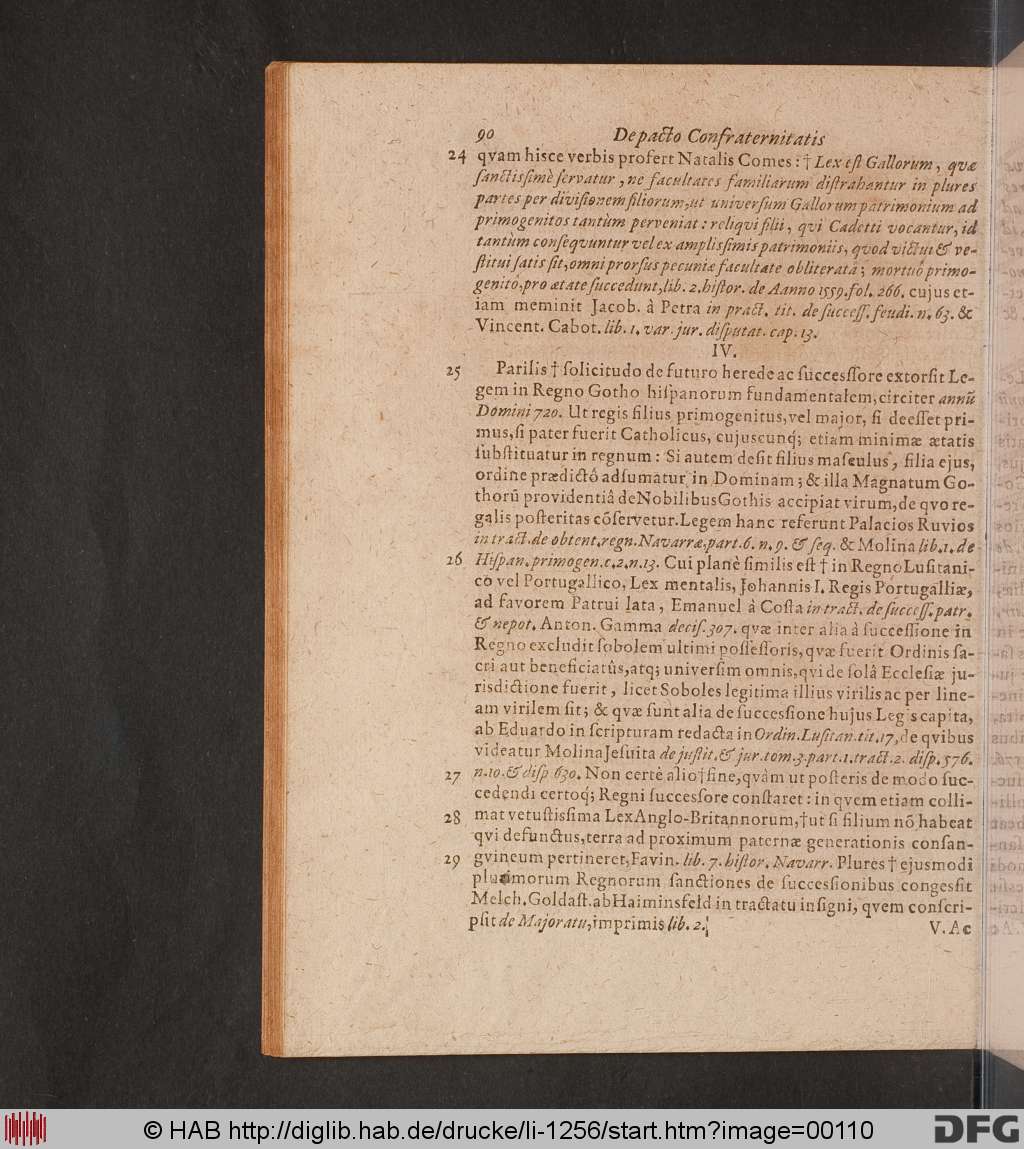 90 De pacto Confraternitatis
24 qvam hisce verbis profert Natalis Comes: † Lex eſt Gallorum, qvæ
ſanctiſsimè ſervatur, ne facultates familiarum diſtrahantur in plures
partes per diviſionem filiorum, ut univerſum Gallorum patrimonium ad
primogenitos tantùm perveniat: reliqvi filii, qvi Cadetti vocantur, id
tantùm conſeqvuntur vel ex ampliſsimis patrimoniis, qvod victui & ve-
ſtitui ſatis ſit, omni prorſus pecuniæ facultate obliteratâ; mortuô primo-
genitô, pro ætate ſuccedunt, lib. 2. hiſtor. de Aanno 1559. fol. 266. cujus et-
iam meminit Jacob. â Petra in pract. tit. de ſucceſſ. feudi. n. 63. &
Vincent. Cabot. lib. 1. var. jur. diſputat. cap. 13.
IV.
25 Parilis † ſolicitudo de futuro herede ac ſucceſſore extorſit Le-
gem in Regno Gotho hiſpanorum fundamentalem, circiter annũ
Domini 720. Ut regis filius primogenitus, vel major, ſi deeſſet pri-
mus, ſi pater fuerit Catholicus, cujuscunq; etiam minimæ ætatis
ſubſtituatur in regnum: Si autem deſit filius maſculus, filia ejus,
ordine prædictô adſumatur in Dominam; & illa Magnatum Go-
thorũ providentiâ de Nobilibus Gothis accipiat virum, de qvo re-
galis poſteritas cõſervetur. Legem hanc referunt Palacios Ruvios
in tract. de obtent. regn. Navarræ, part. 6. n. 9. & ſeq. & Molina lib. 1. de
26 Hiſpan. primogen. c. 2. n. 13. Cui planè ſimilis eſt † in Regno Luſitani-
co vel Portugallico, Lex mentalis, Johannis I. Regis Portugalliæ,
ad favorem Patrui lata, Emanuel â Coſta in tract. de ſucceſſ. patr.
& nepot. Anton. Gamma deciſ. 307. qvæ inter alia â ſucceſſione in
Regno excludit ſobolem ultimi poſſeſſoris, qvæ fuerit Ordinis ſa-
cri aut beneficiatûs, atq; univerſim omnis, qvi de ſolâ Eccleſiæ ju-
risdictione fuerit, licet Soboles legitima illius virilis ac per line-
am virilem ſit; & qvæ ſunt alia de ſucceſſione hujus Legis capita,
ab Eduardo in ſcripturam redacta in Ordin. Luſitan. tit. 17, de qvibus
videatur Molina Jeſuita de juſtit. & jur. tom. 3. part. 1. tract. 2. diſp. 576.
27 n. 10. & diſp 630. Non certè alio † fine, qvàm ut poſteris de modo ſuc-
cedendi certoq; Regni ſucceſſore conſtaret: in qvem etiam colli-
28 mat vetuſtiſſima Lex Anglo-Britannorum, † ut ſi filium nõ habeat
qvi defunctus, terra ad proximum paternæ generationis conſan-
29 gvineum pertineret, Favin. lib. 7. hiſtor. Navarr. Plures † ejusmodi
plurimorum Regnorum ſanctiones de ſucceſſionibus congeſſit
Melch. Goldaſt. ab Haiminsfeld in tractatu inſigni, qvem conſcri-
pſit de Majoratu, imprimis lib. 2.
V. Ac
© HAB http://diglib.hab.de/drucke/li-1256/start.htm?image=00110
DFG